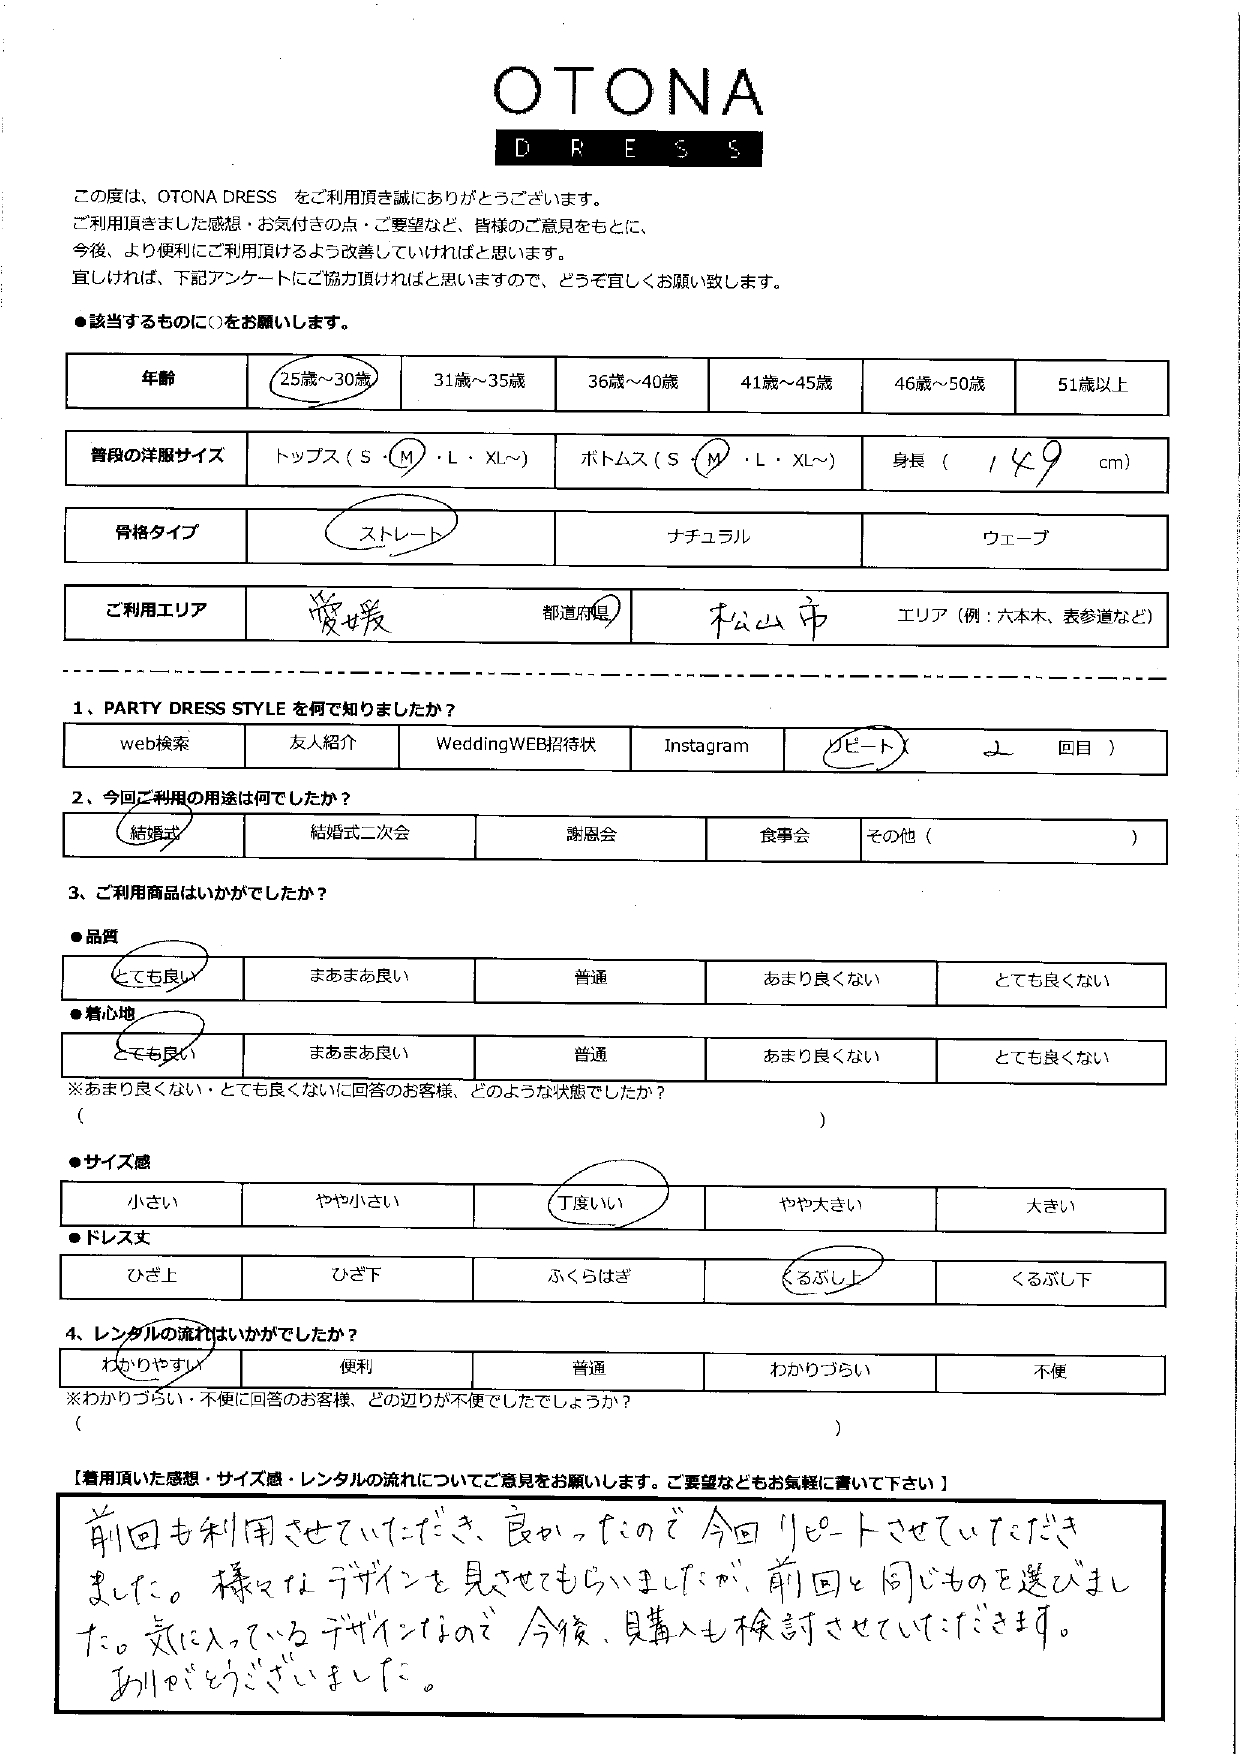 OTONA
DRESS
この度は、OTONA DRESS をご利用頂き誠にありがとうございます。
ご利用頂きました感想・お気付きの点・ご要望など、皆様のご意見をもとに、
今後、より便利にご利用頂けるよう改善していければと思います。
宜しければ、下記アンケートにご協力頂ければと思いますので、どうぞ宜しくお願い致します。
●該当するものに○をお願いします。
年齢 25歳～30歳 31歳～35歳 36歳～40歳 41歳～45歳 46歳～50歳 51歳以上
普段の洋服サイズ トップス ( S ・ M ・ L ・ XL～) ボトムス ( S ・ M ・ L ・ XL～) 身長 ( 149 cm)
骨格タイプ ストレート ナチュラル ウェーブ
ご利用エリア 愛媛 都道府県 松山市 エリア（例：六本木、表参道など）
1、PARTY DRESS STYLE を何で知りましたか？
web検索 友人紹介 WeddingWEB招待状 Instagram リピート ( 2 回目 )
2、今回ご利用の用途は何でしたか？
結婚式 結婚式二次会 謝恩会 食事会 その他 ( )
3、ご利用商品はいかがでしたか？
●品質
とても良い まあまあ良い 普通 あまり良くない とても良くない
●着心地
とても良い まあまあ良い 普通 あまり良くない とても良くない
※あまり良くない・とても良くないに回答のお客様、どのような状態でしたか？
( )
●サイズ感
小さい やや小さい 丁度いい やや大きい 大きい
●ドレス丈
ひざ上 ひざ下 ふくらはぎ くるぶし上 くるぶし下
4、レンタルの流れはいかがでしたか？
わかりやすい 便利 普通 わかりづらい 不便
※わかりづらい・不便に回答のお客様、どの辺りが不便でしたでしょうか？
( )
【着用頂いた感想・サイズ感・レンタルの流れについてご意見をお願いします。ご要望などもお気軽に書いて下さい】
前回も利用させていただき、良かったので今回リピートさせていただき
ました。様々なデザインを見させてもらいましたが、前回と同じものを選びまし
た。気に入っているデザインなので今後、購入も検討させていただきます。
ありがとうございました。